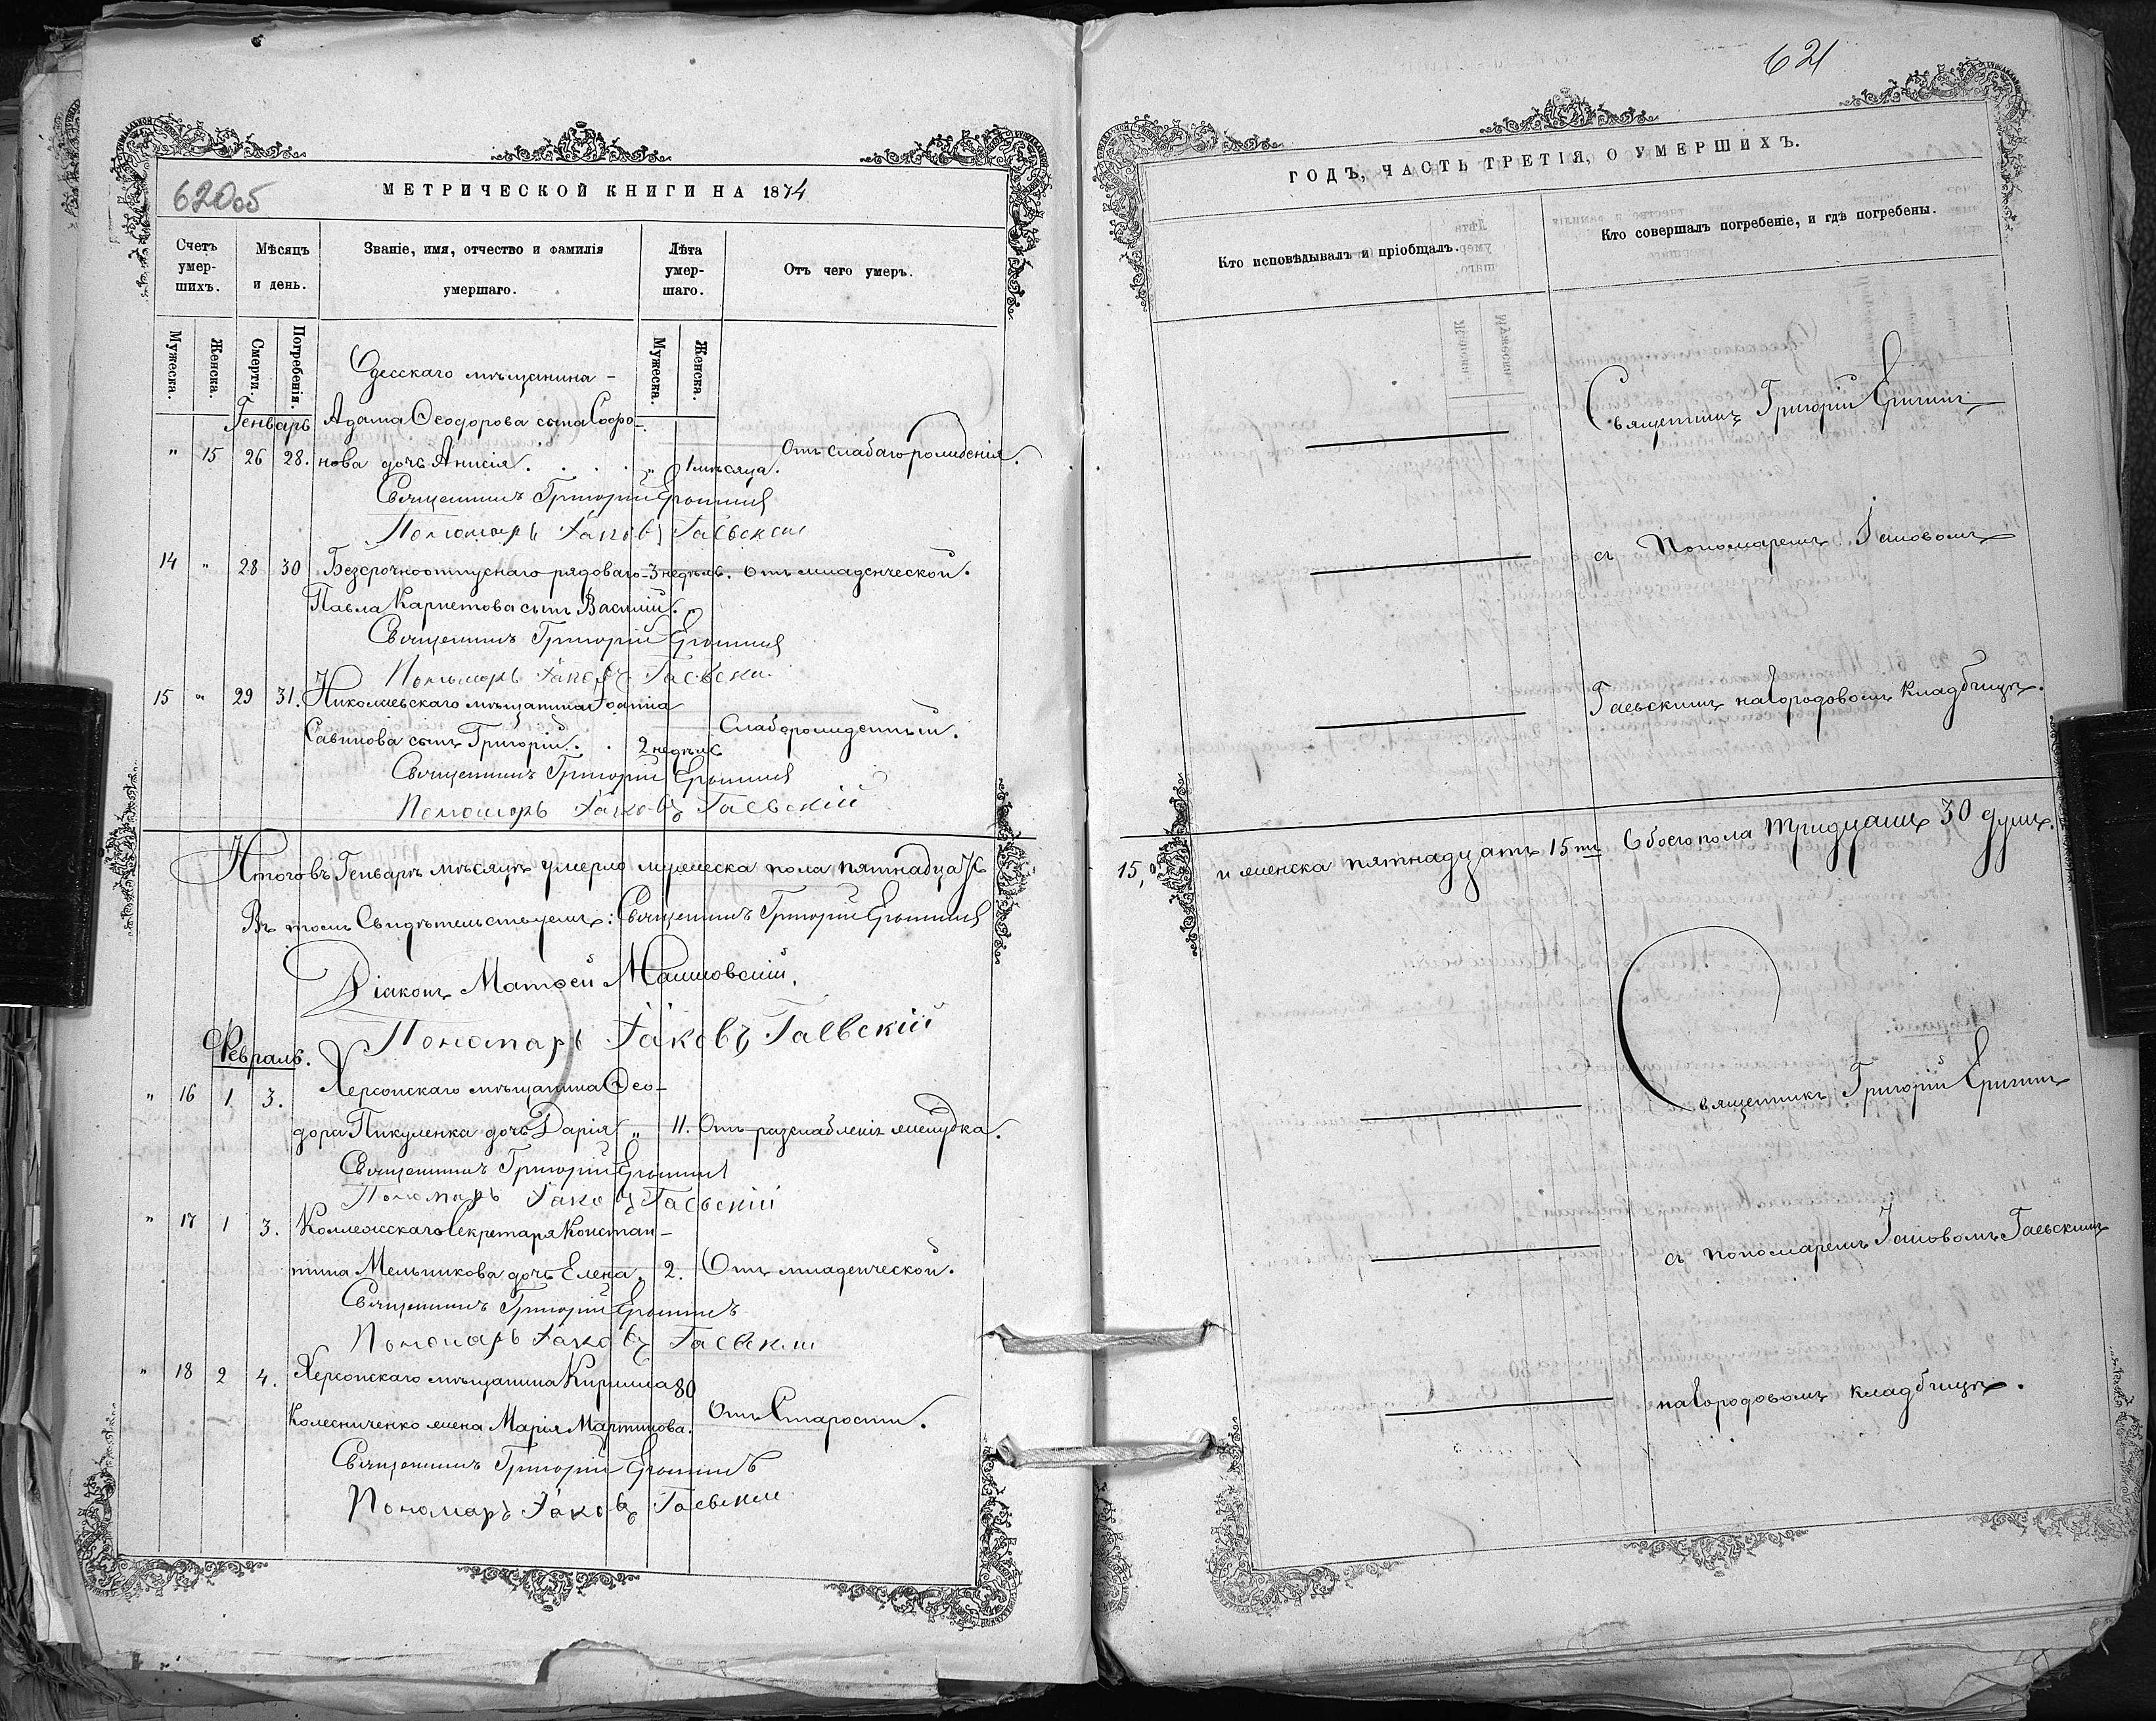 620об
МЕТРИЧЕСКОЙ КНИГИ НА 1874
Счетъ умер-шихъ.
Мѣсяцъ и день.
Званіе, имя, отчество и фамилія умершаго.
Лѣта умер-шаго.
Отъ чего умеръ.
Мужеска.
Женска.
Смерти.
Погребенія.
Мужеска.
Женска.
Одесскаго мѣщанина -
Генварь Адама Ѳеодорова сына Софро-
" 15 26 28. нова дочь Анисія . . . . " 1 мѣсяца. Отъ слабаго рожденія.
Священникъ Григорій
Пономарь Іаковъ Гаевскій
14 " 28 30 Безсрочноотпускнаго рядоваго 3 недѣль. Отъ младенческой.
Павла Карпетова сынъ Василій.
Священникъ Григорій
Пономарь Іаковъ Гаевскій
15 " 29 31. Николаевскаго мѣщанина Іоанна
Савинова сынъ Григорій . . 2 недѣль Слаборожденный.
Священникъ Григорій
Пономарь Іаковъ Гаевскій
Итого въ Генварѣ мѣсяцѣ умерло мужеска пола пятнадцать
Въ томъ Свидѣтельствуемъ: Священникъ Григорій
Діаконъ Матѳей
Пономарь Іаковъ Гаевскій
Февраль.
" 16 1 3. Херсонскаго мѣщанина Ѳео-
дора Пикуленка дочь Дарія " 11. Отъ разслабленія желудка.
Священникъ Григорій
Пономарь Іаковъ Гаевскій
" 17 1 3. Коллежскаго Секретаря Констан-
тина Мельникова дочь Елена. 2. Отъ младенческой.
Священникъ Григорій
Пономарь Іаковъ Гаевскій
" 18 2 4. Херсонскаго мѣщанина Кирилла 80
Колесниченко жена Марія Мартинова. Отъ Старости.
Священникъ Григорій
Пономарь Іаковъ Гаевскій
621
ГОДЪ, ЧАСТЬ ТРЕТІЯ, О УМЕРШИХЪ.
Кто исповѣдывалъ и пріобщалъ.
Кто совершалъ погребеніе, и гдѣ погребены.
Священникъ Григорій
съ Пономаремъ Іаковомъ
Гаевскимъ на городовомъ кладбищѣ.
15, и женска пятнадцать 15ть Обоего пола тридцать 30 душъ.
Священникъ Григорій
съ пономаремъ Іаковомъ Гаевскимъ
на городовомъ кладбищѣ.